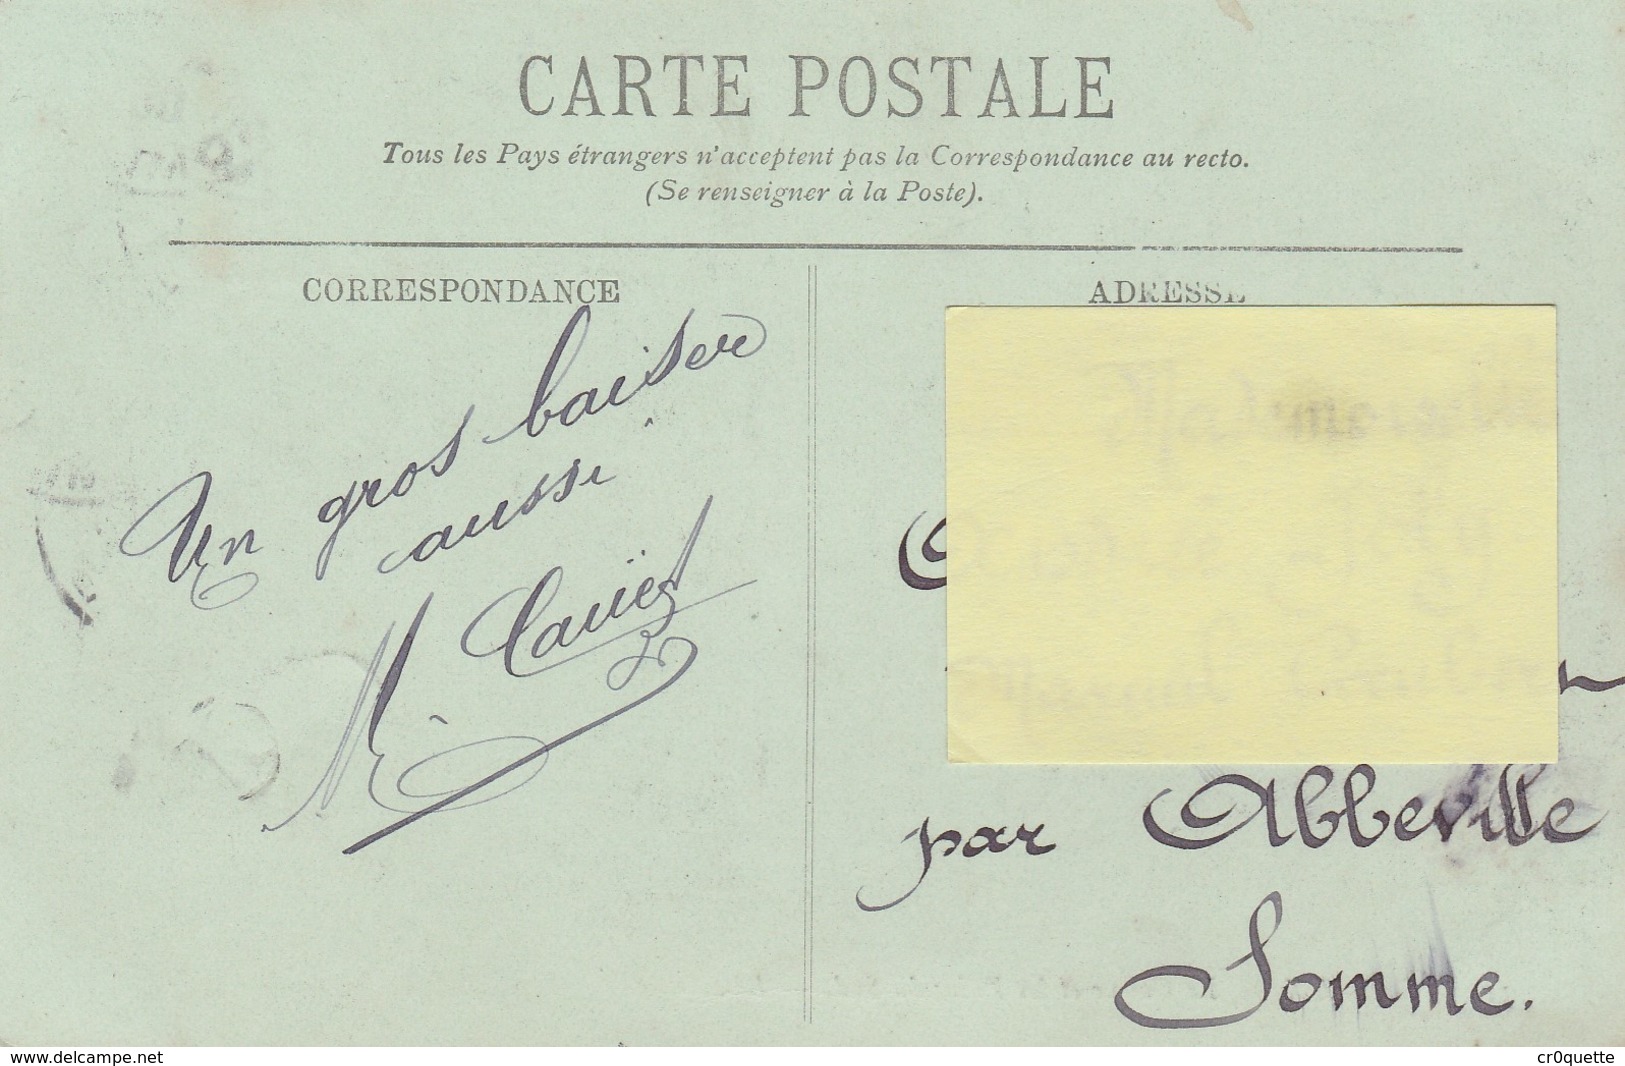 CARTE POSTALE
Tous les Pays étrangers n'acceptent pas la Correspondance au recto.
(Se renseigner à la Poste).
CORRESPONDANCE
ADRESSE
Un gros baiser
aussi
M.
par Abbeville
Somme.
www.delcampe.net
cr0quette